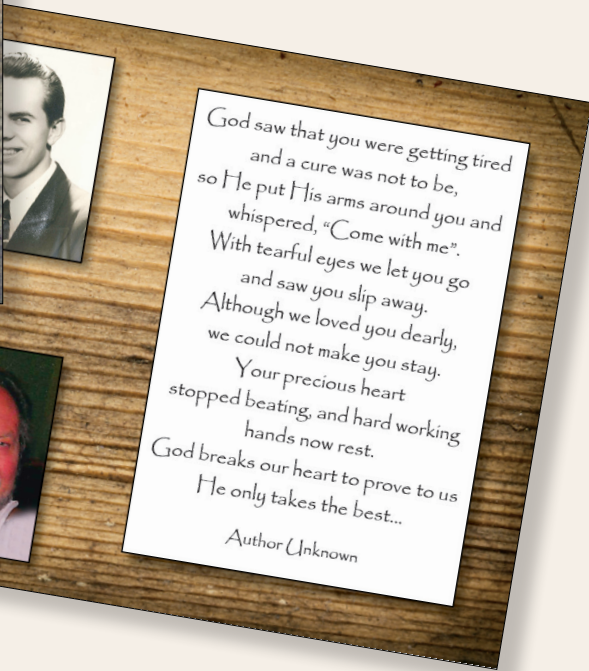 God saw that you were getting tired
and a cure was not to be,
so He put His arms around you and
whispered, “Come with me”.
With tearful eyes we let you go
and saw you slip away.
Although we loved you dearly,
we could not make you stay.
Your precious heart
stopped beating, and hard working
hands now rest.
God breaks our heart to prove to us
He only takes the best...
Author Unknown